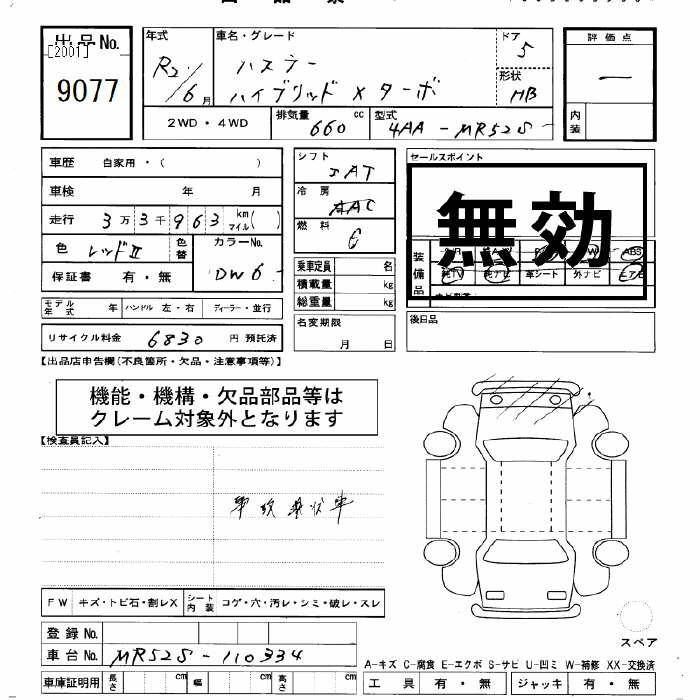 出品No.
[2001]
9077
年式
R2/6月
車名・グレード
ハスラー
ハイブリッド X ターボ
ドア
5
形状
HB
2WD・4WD
排気量 660 cc
型式 4AA-MR52S
評価点
一
内装
車歴 自家用・( )
車検 年 月
走行 3万3千963 km マイル( )
色 レッドII 色替
カラーNo.
DW6
保証書 有・無
モデル年式 年 ハンドル 左・右 ディーラー・並行
リサイクル料金 6830 円 預託済
シフト
IAT
冷房
AAC
燃料
G
乗車定員 名
積載量 kg
総重量 kg
名変期限
月 日
セールスポイント
無効
装備品
ABS
革シート 外ナビ
後日品
【出品店申告欄(不良箇所・欠品・注意事項等)】
機能・機構・欠品部品等は
クレーム対象外となります
【検査員記入】
FW キズ・トビ石・割レX シート内装 コゲ・穴・汚レ・シミ・破レ・スレ
登録No.
車台No. MR52S-110334
車庫証明用 長さ cm 幅 cm 高さ cm
スペア
A-キズ C-腐食 E-エクボ S-サビ U-凹ミ W-補修 XX-交換済
工具 有・無 ジャッキ 有・無